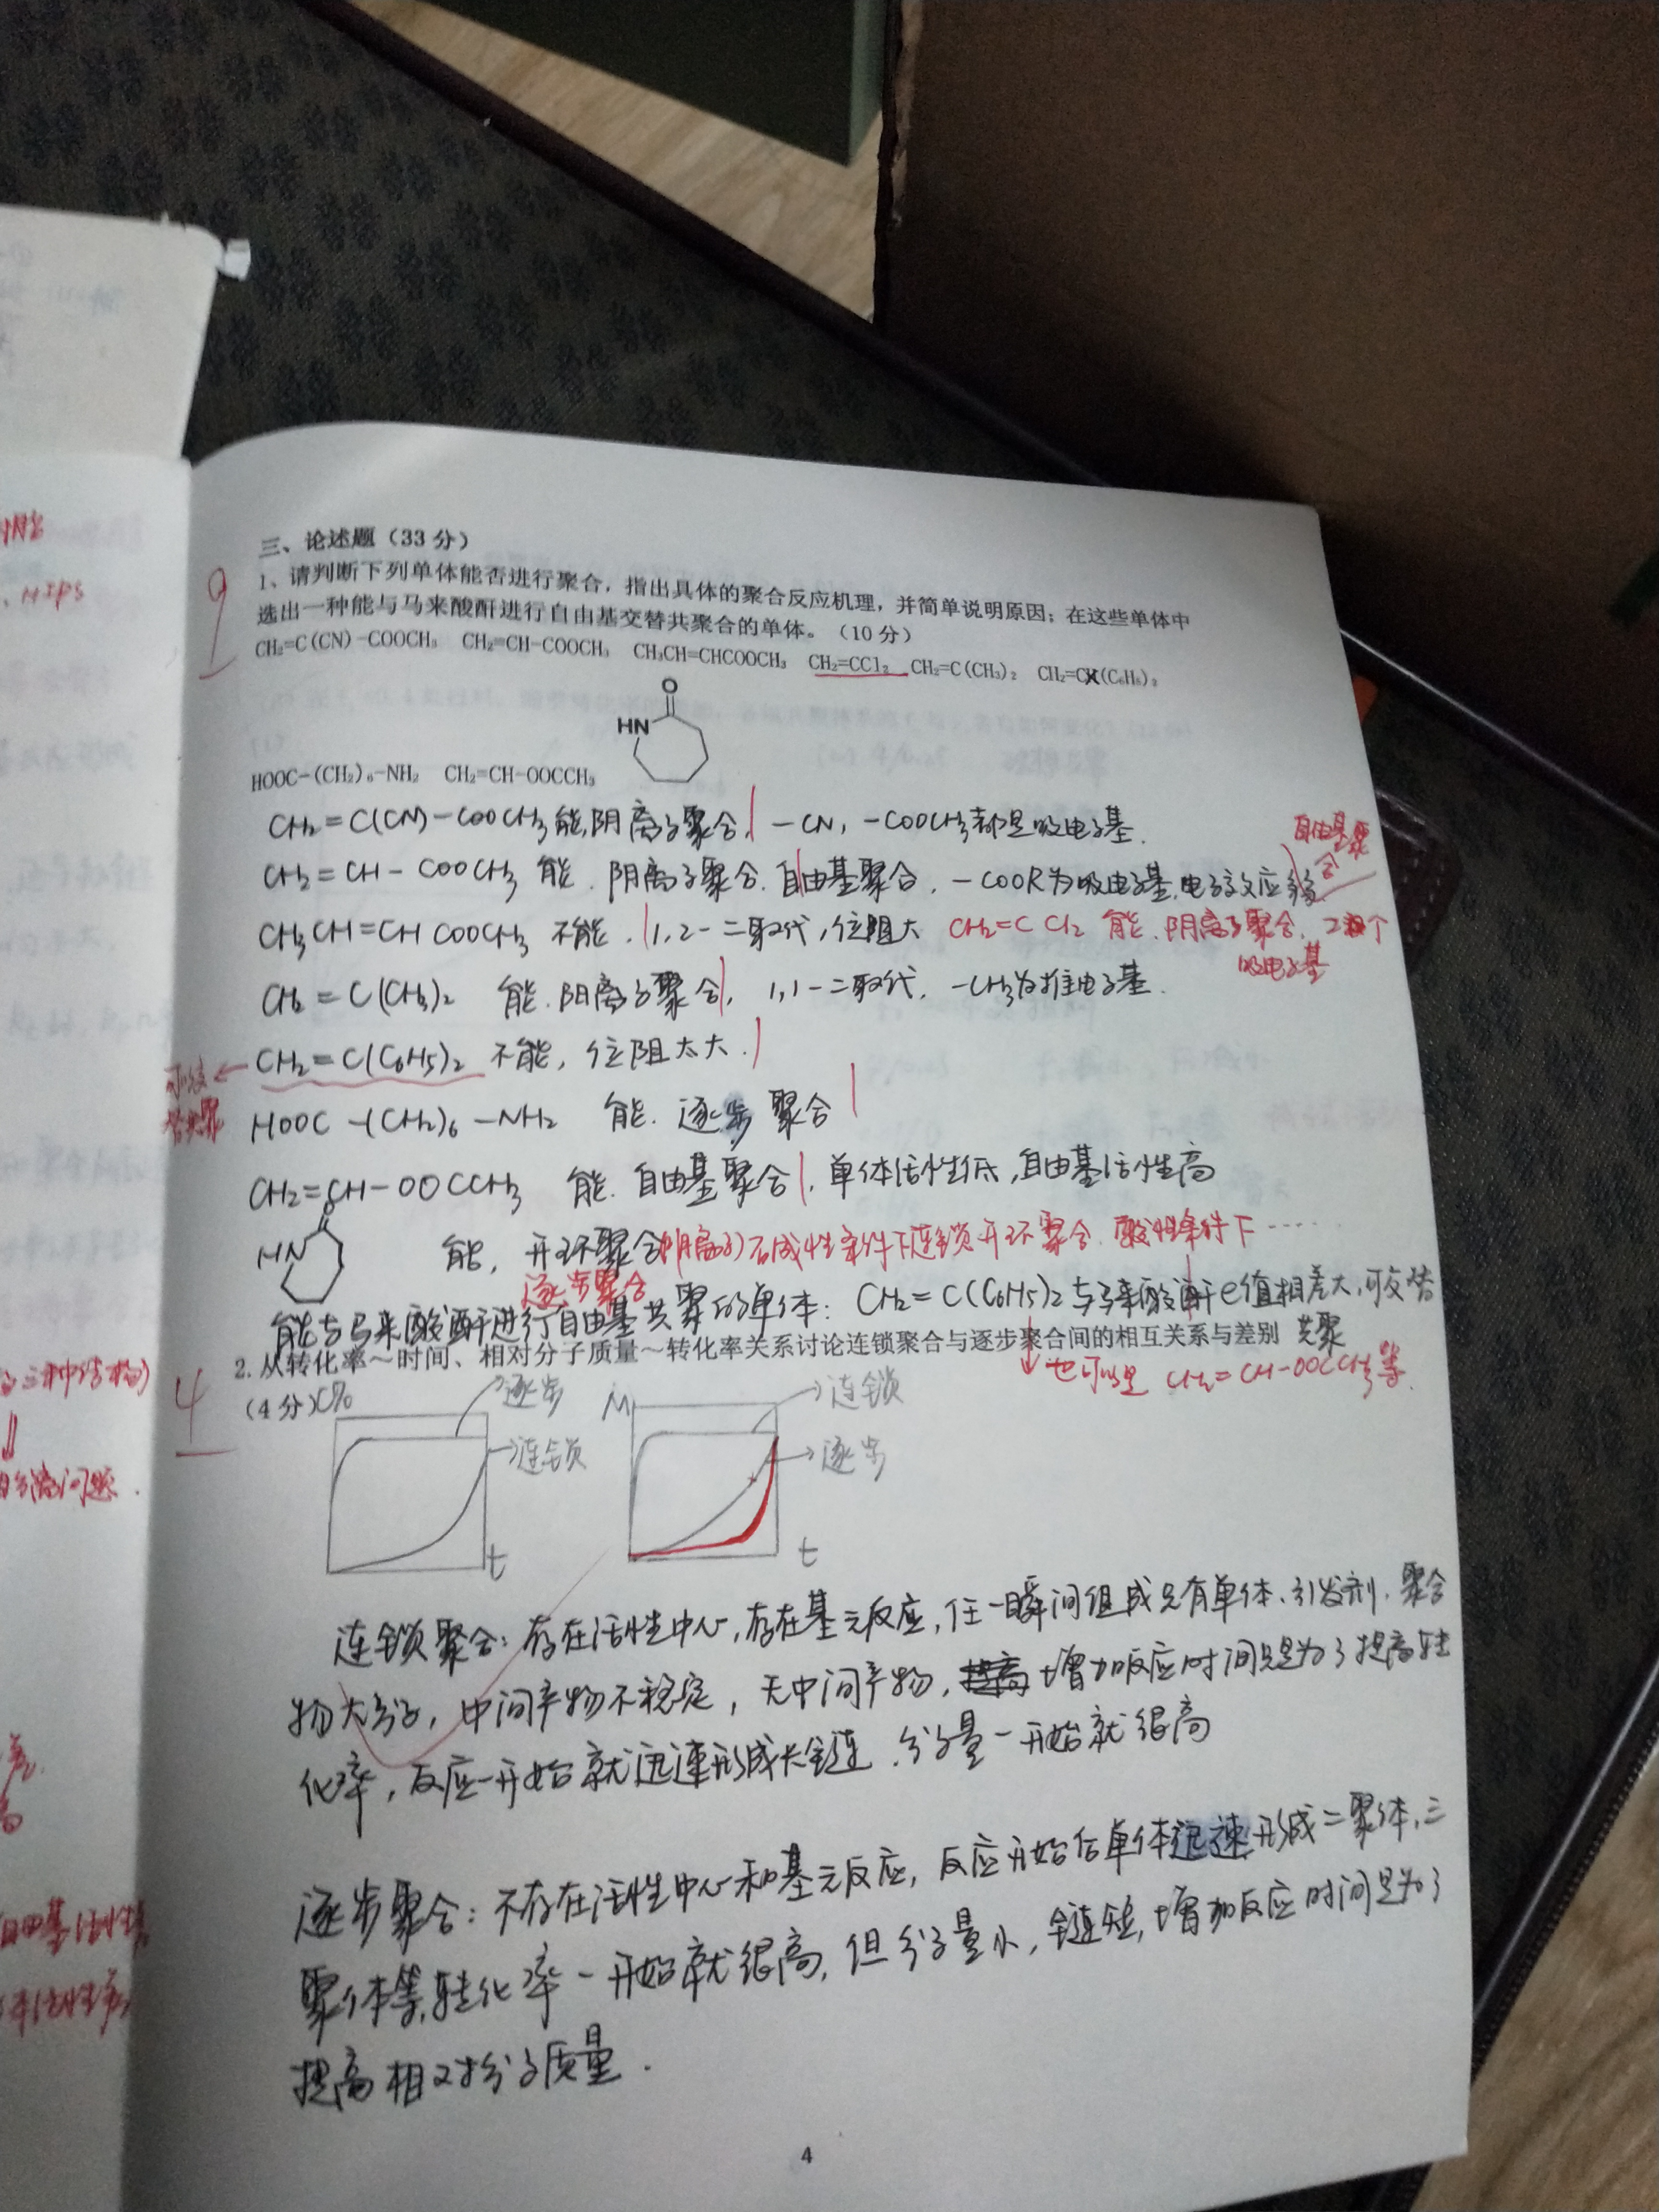 HIPS
三、论述题（33 分）
9
1、请判断下列单体能否进行聚合，指出具体的聚合反应机理，并简单说明原因；在这些单体中
选出一种能与马来酸酐进行自由基交替共聚合的单体。（10 分）
CH₂=C(CN)-COOCH₃ CH₂=CH-COOCH₃ CH₃CH=CHCOOCH₃ CH₂=CCl₂ CH₂=C(CH₃)₂ CH₂=C(C₆H₅)₂
O
HN
HOOC-(CH₂)₆-NH₂ CH₂=CH-OOCCH₃
CH₂=C(CN)-COOCH₃ 能,阴离子聚合, -CN, -COOCH₃都是吸电子基.
自由基聚合
CH₂=CH-COOCH₃ 能. 阴离子聚合. 自由基聚合, -COOR为吸电子基,电子效应
CH₃CH=CHCOOCH₃ 不能. 1,2-二取代,位阻大 CH₂=CCl₂ 能. 阴离子聚合. 2个
吸电子基
CH₂=C(CH₃)₂ 能. 阳离子聚合, 1,1-二取代. -CH₃为推电子基.
可以交替共聚 ← CH₂=C(C₆H₅)₂ 不能, 位阻太大.
HOOC-(CH₂)₆-NH₂ 能. 逐步聚合
CH₂=CH-OOCCH₃ 能. 自由基聚合, 单体活性低,自由基活性高
HN O 能, 开环聚合(阴离子)在碱性条件下连锁开环聚合. 酸性条件下……
逐步聚合
能与马来酸酐进行自由基共聚的单体: CH₂=C(C₆H₅)₂与马来酸酐e值相差大,可交替
共聚
2. 从转化率～时间、相对分子质量～转化率关系讨论连锁聚合与逐步聚合间的相互关系与差别
↓也可以是 CH₂=CH-OOCCH₃等.
4
（4 分）C%
逐步
连锁
t
M
连锁
逐步
t
连锁聚合: 存在活性中心,存在基元反应,任一瞬间组成只有单体、引发剂. 聚合
物大分子, 中间产物不稳定, 无中间产物, 增加反应时间只是为了提高转
化率, 反应一开始就迅速形成长链. 分子量一开始就很高
逐步聚合: 不存在活性中心和基元反应, 反应开始后单体迅速形成二聚体,三
聚体等,转化率一开始就很高, 但分子量小, 链短, 增加反应时间是为了
提高相对分子质量.
4